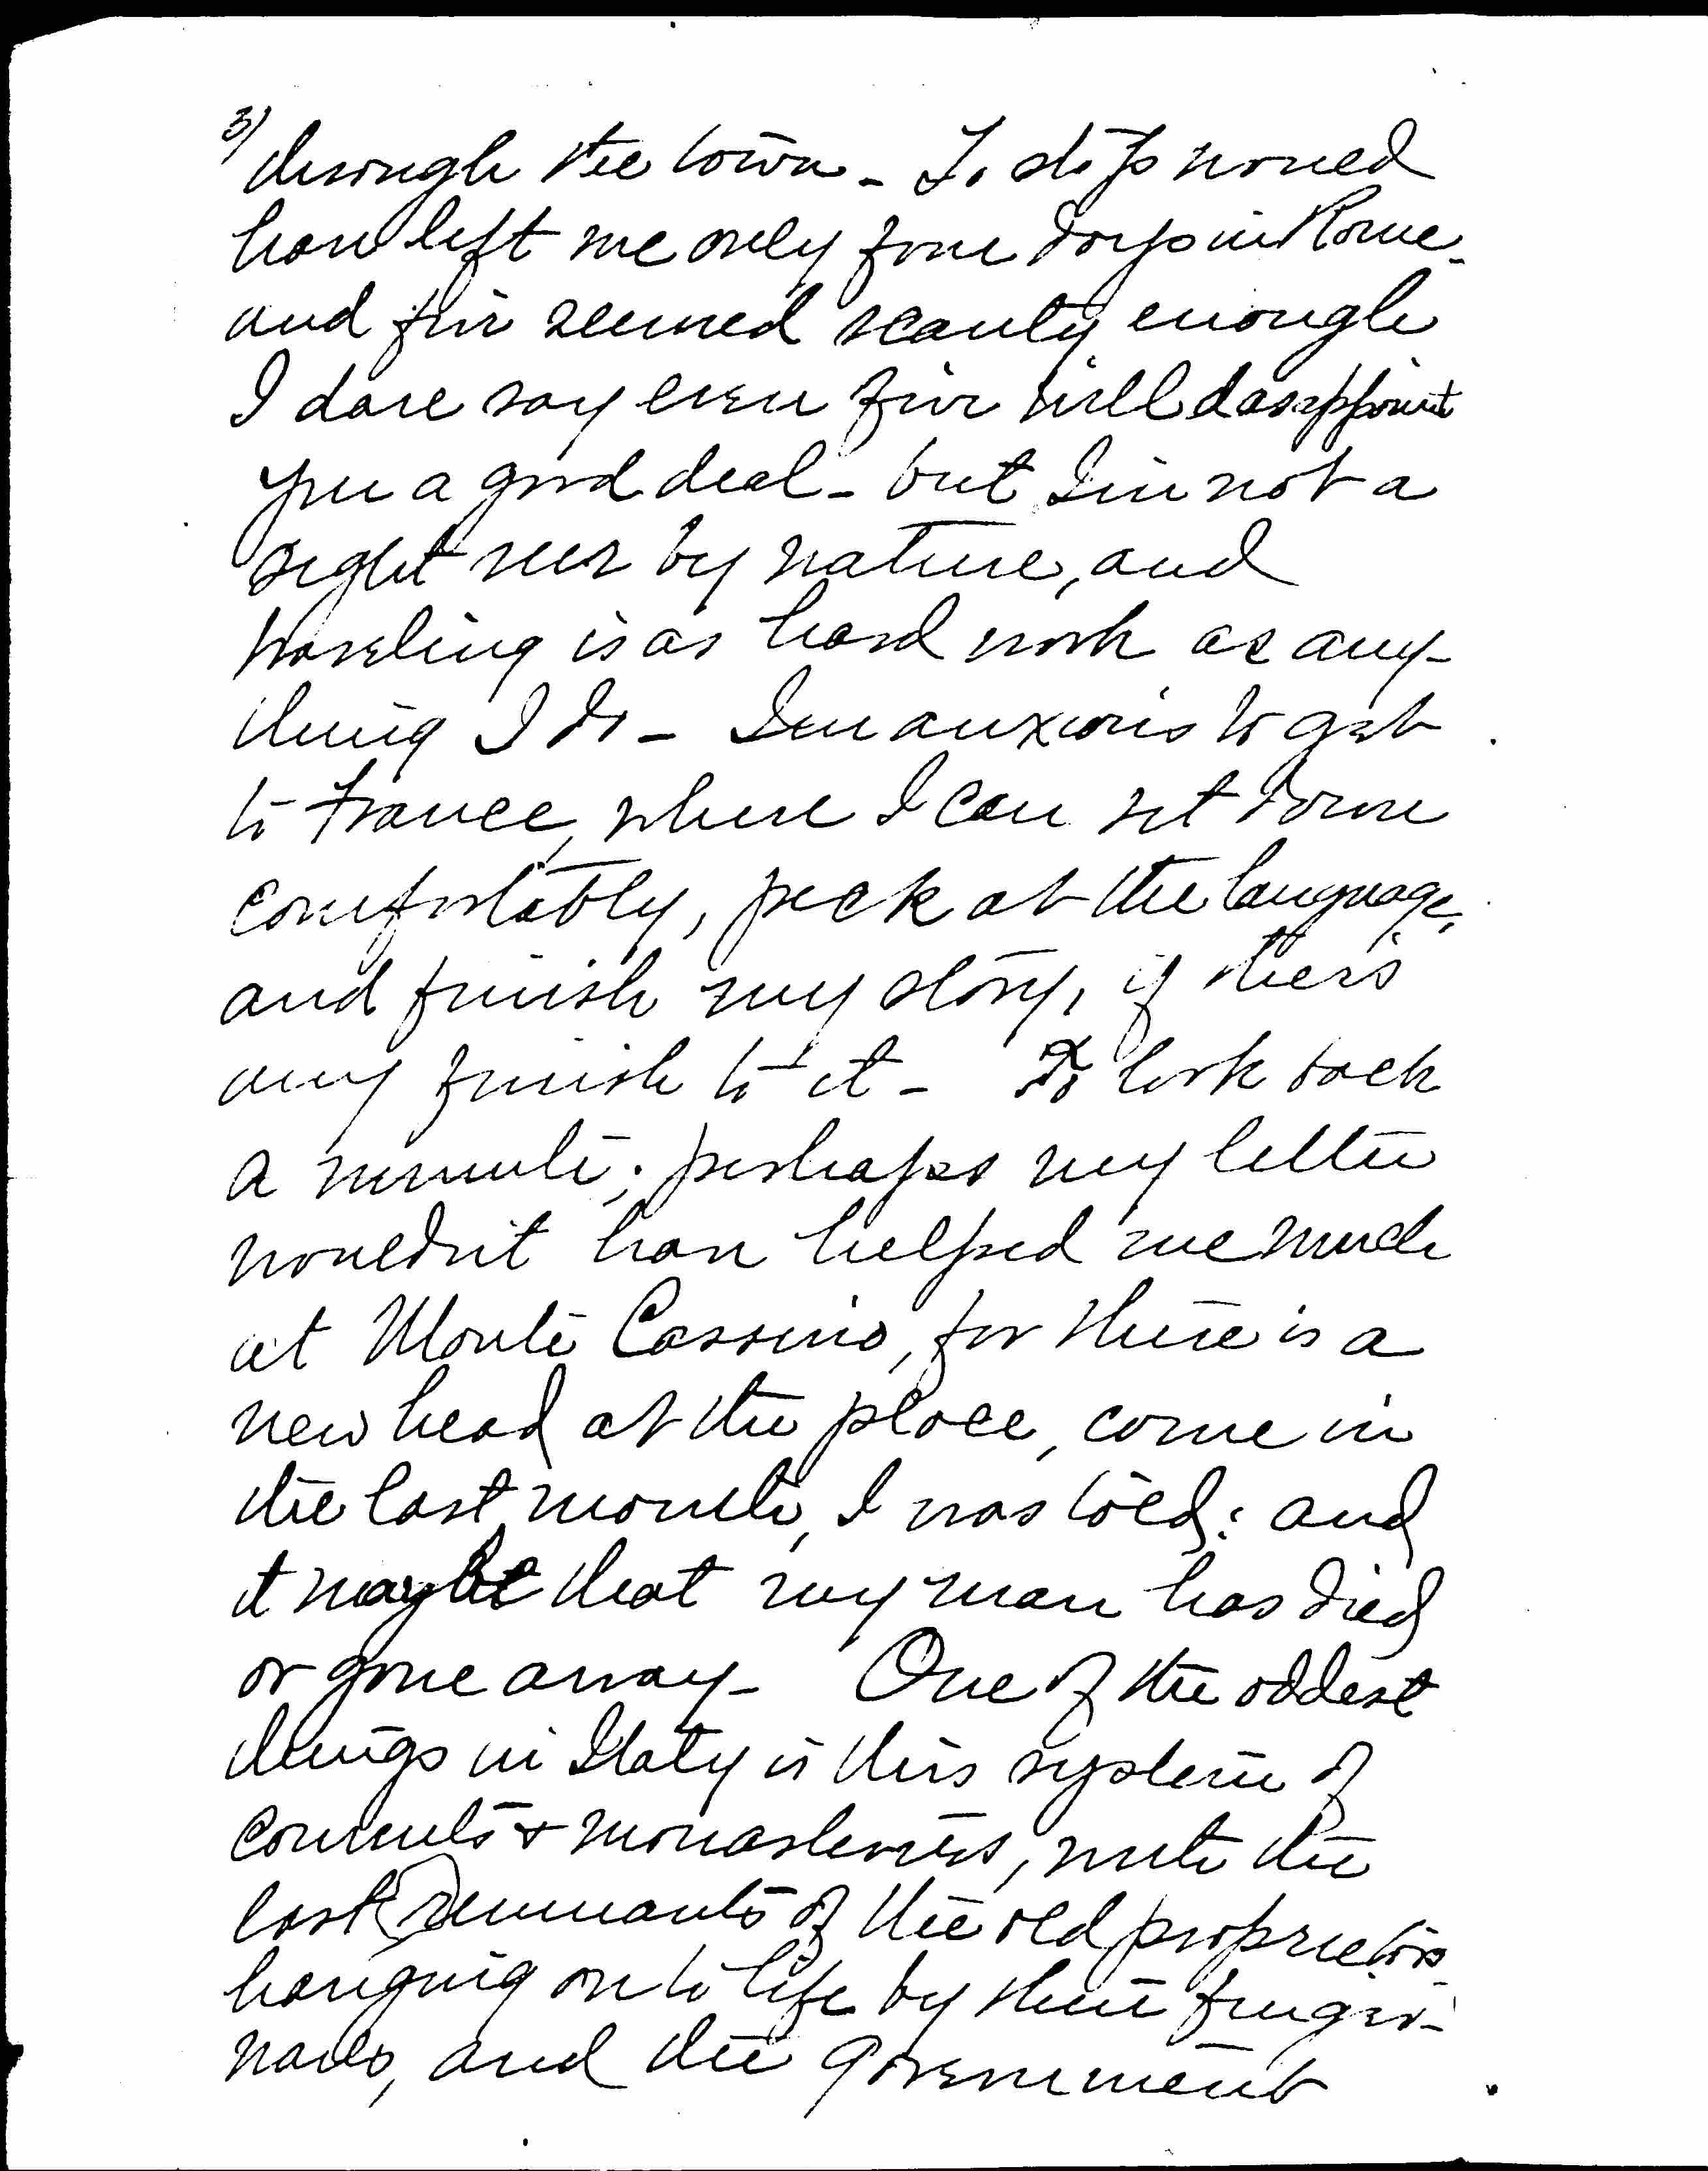 3)
through the town - To stop would
have left me only four days in Rome -
and five seemed scanty enough
I dare say even five will dasappoint
you a good deal - but I'm not a
sight seer by nature, and
traveling is as hard work as any-
thing I do - I'm anxious to get
to France, where I can set down
comfortably, peck at the language,
and finish my story, if there's
any finish to it - To look back
a minute; perhaps my letter
wouldn't have helped me much
at Monte Cassino, for there is a
new head at the place, come in
the last month, I was told: and
it may be that my man has died
or gone away - One of the oddest
things in Italy is this system of
convents & monasteries, with the
last remnants of the old proprietors
hanging on to life by their finger-
nails, and the government